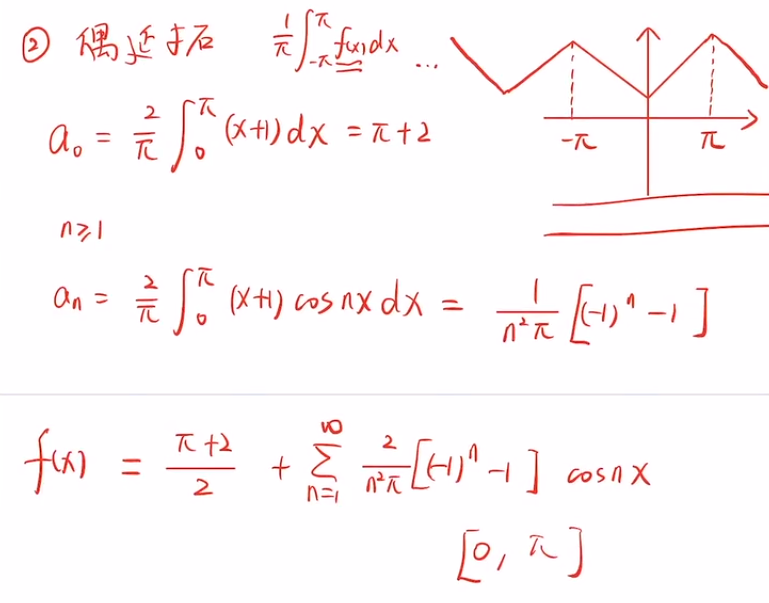 ② 偶延拓 1/π ∫_{-π}^{π} f(x)dx ...
-π π
a₀ = 2/π ∫₀^π (x+1)dx = π+2
n≥1
aₙ = 2/π ∫₀^π (x+1) cosnx dx = 1/(n²π) [(-1)ⁿ -1]
f(x) = (π+2)/2 + ∑_{n=1}^{∞} 2/(n²π) [(-1)ⁿ -1] cosnx
[0, π]